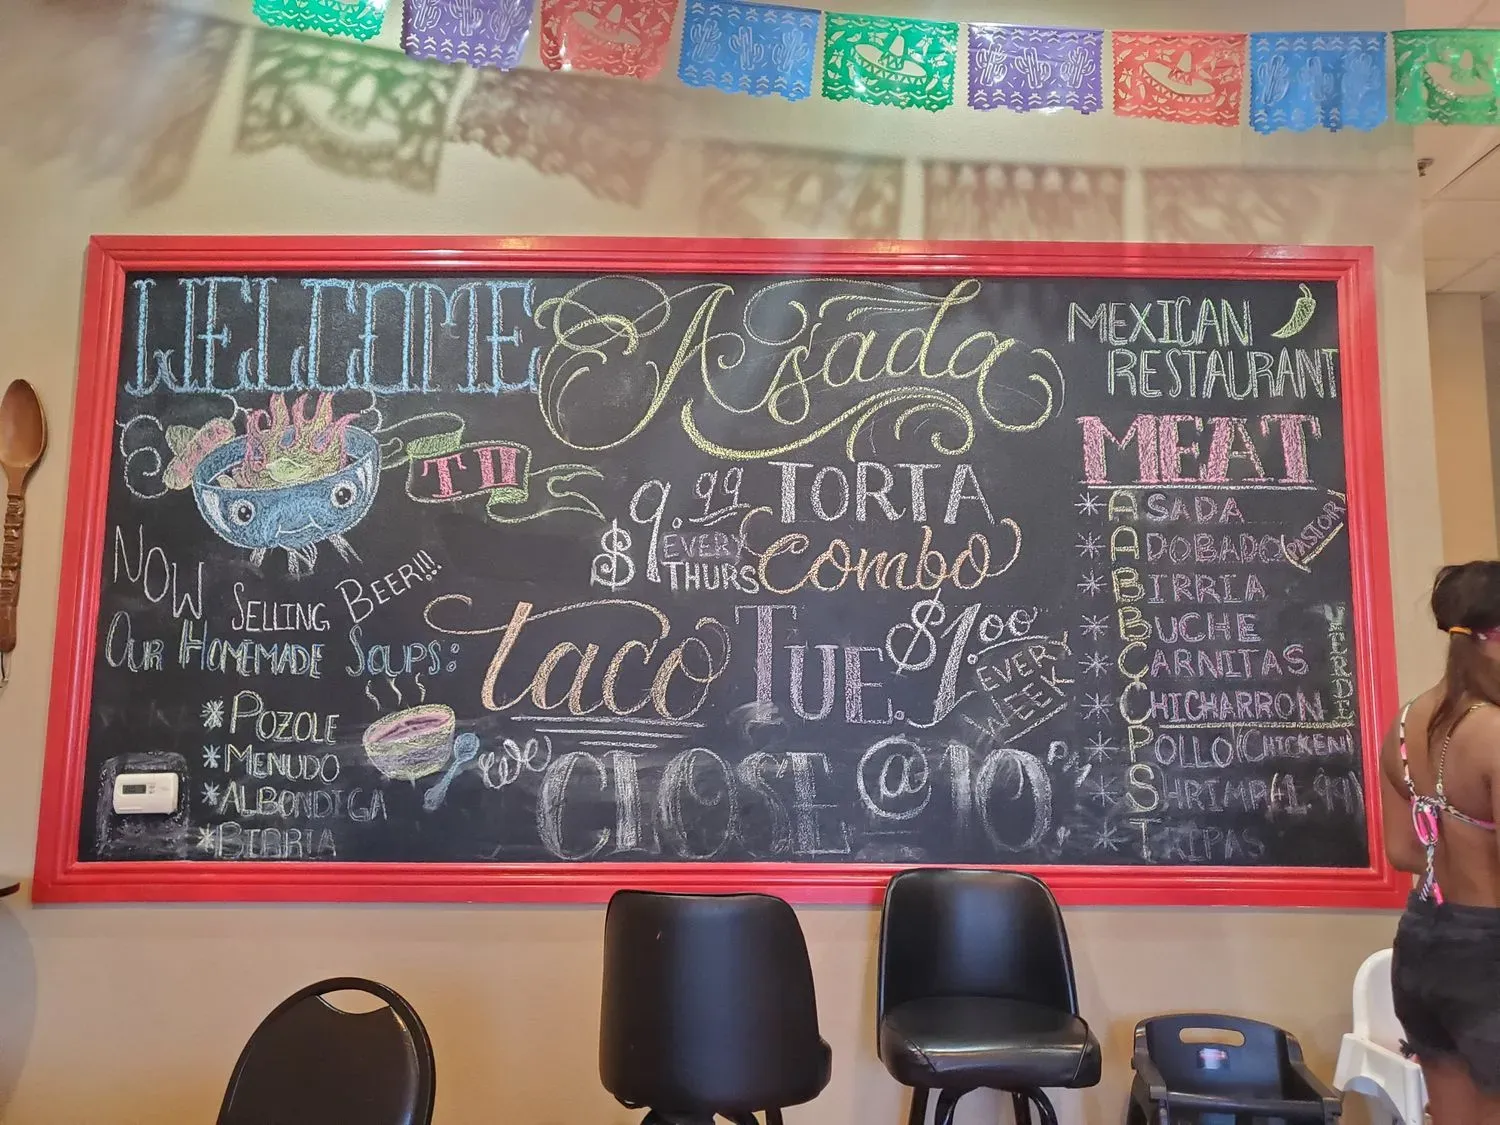 WELCOME
TO
Asada
MEXICAN
RESTAURANT
NOW SELLING BEER!!!
OUR HOMEMADE SOUPS:
* POZOLE
* MENUDO
* ALBONDIGA
* BIRRIA
$9.99 TORTA
EVERY
THURS
Combo
taco TUE. $1.00
EVERY
WEEK
we CLOSE @ 10 PM
MEAT
* ASADA
* ADOBADO (PASTOR)
* BIRRIA
* BUCHE
* CARNITAS
* CHICHARRON VERDE
* POLLO (CHICKEN)
* SHRIMP (+1.99)
* TRIPAS